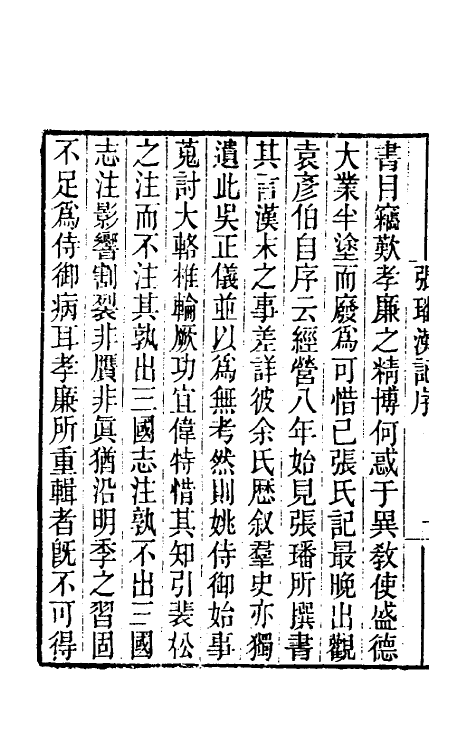 張璠漢記序
書目竊歎孝廉之精博何惑于異敎使盛德
大業半塗而廢爲可惜已張氏記最晚出觀
袁彥伯自序云經營八年始見張璠所撰書
其言漢末之事差詳彼余氏歴叙羣史亦獨
遺此吳正儀並以爲無考然則姚侍御始事
蒐討大輅椎輪厥功宜偉特惜其知引裴松
之注而不注其孰出三國志注孰不出三國
志注影響割裂非贋非眞猶沿明季之習固
不足爲侍御病耳孝廉所重輯者旣不可得